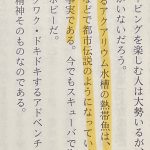 ピングを楽しむ人は大勢いるが、
がいないだろう。
るアクアリウム水槽の熱帯魚は、
などで都市伝説のようになってい
事実である。今でもスキューバで
クワク・ドキドキするアドベンチ
ホビーだ。
精神そのものなのである。